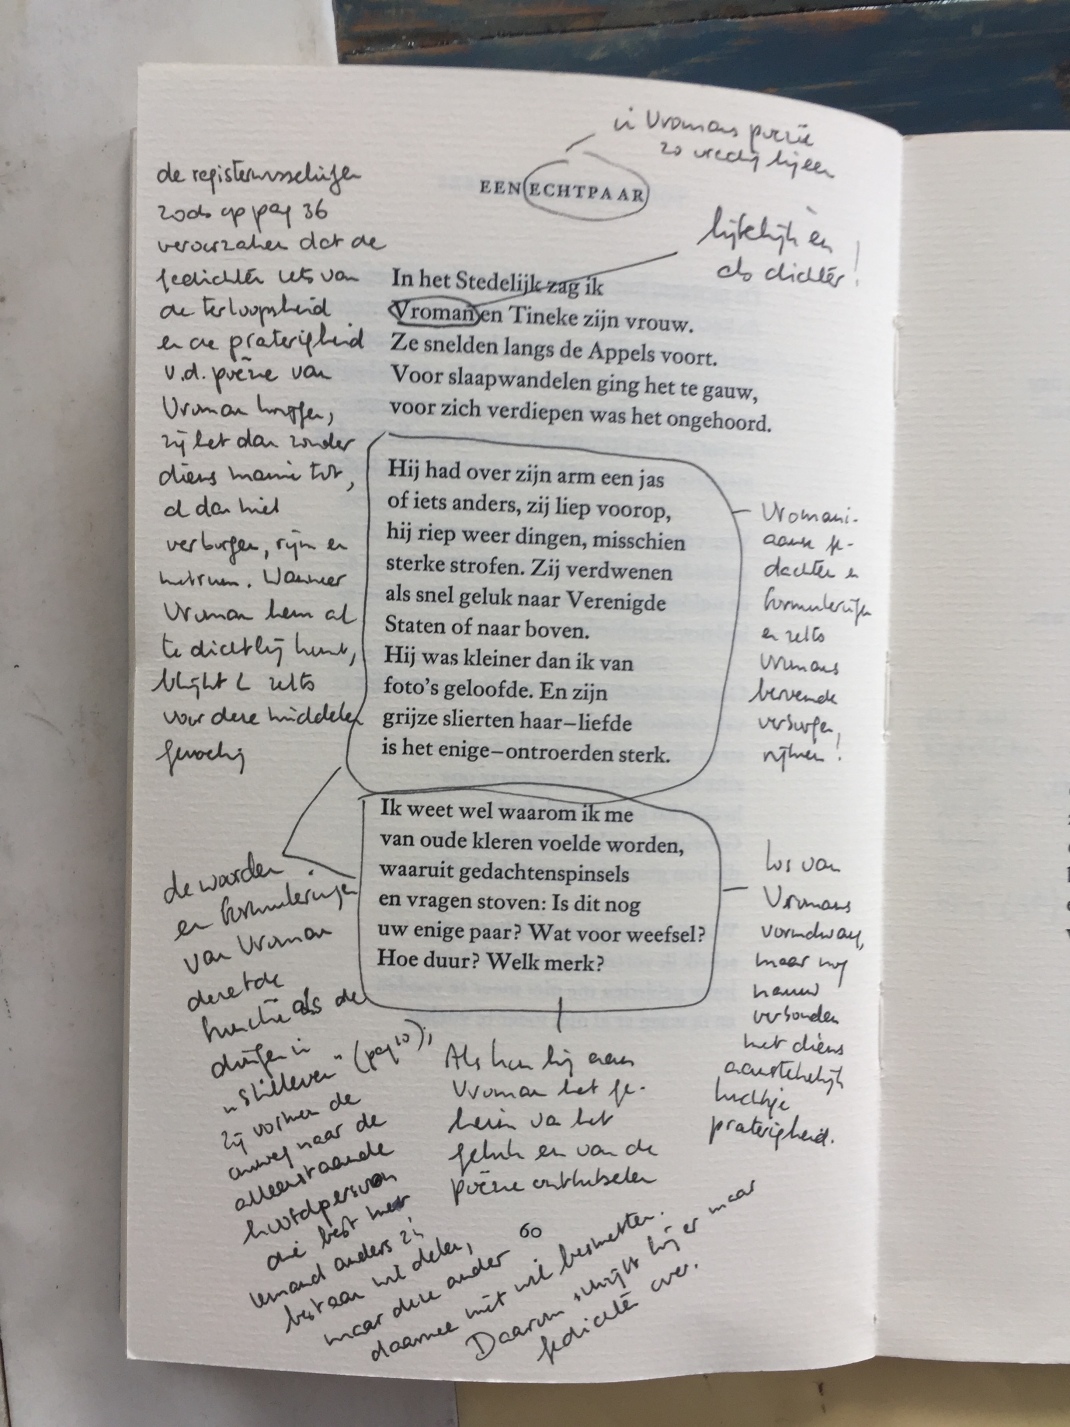 in Vromans poëzie
zo vredig bijeen
EEN ECHTPAAR
en
als dichter!
In het Stedelijk zag ik
Vroman en Tineke zijn vrouw.
Ze snelden langs de Appels voort.
Voor slaapwandelen ging het te gauw,
voor zich verdiepen was het ongehoord.
Hij had over zijn arm een jas
of iets anders, zij liep voorop,
hij riep weer dingen, misschien
sterke strofen. Zij verdwenen
als snel geluk naar Verenigde
Staten of naar boven.
Hij was kleiner dan ik van
foto's geloofde. En zijn
grijze slierten haar–liefde
is het enige–ontroerden sterk.
Ik weet wel waarom ik me
van oude kleren voelde worden,
waaruit gedachtenspinsels
en vragen stoven: Is dit nog
uw enige paar? Wat voor weefsel?
Hoe duur? Welk merk?
de registerwisselingen
zoals op pag 36
veroorzaken dat de
gedichten iets van
de terloopsheid
en de praterigheid
v.d. poëzie van
Vroman krijgen,
zij het dan zonder
diens manie tot,
al dan niet
verborgen, rijm en
metrum. Wanneer
Vroman hem al
te dichtbij komt,
blijkt L zelfs
voor deze middelen
gevoelig
Vromani-
aanse ge-
dachten en
formuleringen
en zelfs
Vromans
beroemde
verborgen
rijmen!
los van
Vromans
maar nog
nauw
verbonden
met diens
aanstekelijk
luchtige
praterigheid.
de woorden
en formuleringen
van Vroman
functie als de
dingen in
"Stilleven" (pag 10);
zij vormen de
omweg naar de
alleenstaande
hoofdpersoon
die best met
iemand anders zijn
bestaan wil delen,
maar deze ander
daarmee niet wil besmetten.
Daarom schrijft hij er maar
gedichten over.
Als kon hij aan
Vroman het ge-
heim van het
geluk en van de
poëzie ontfutselen
60